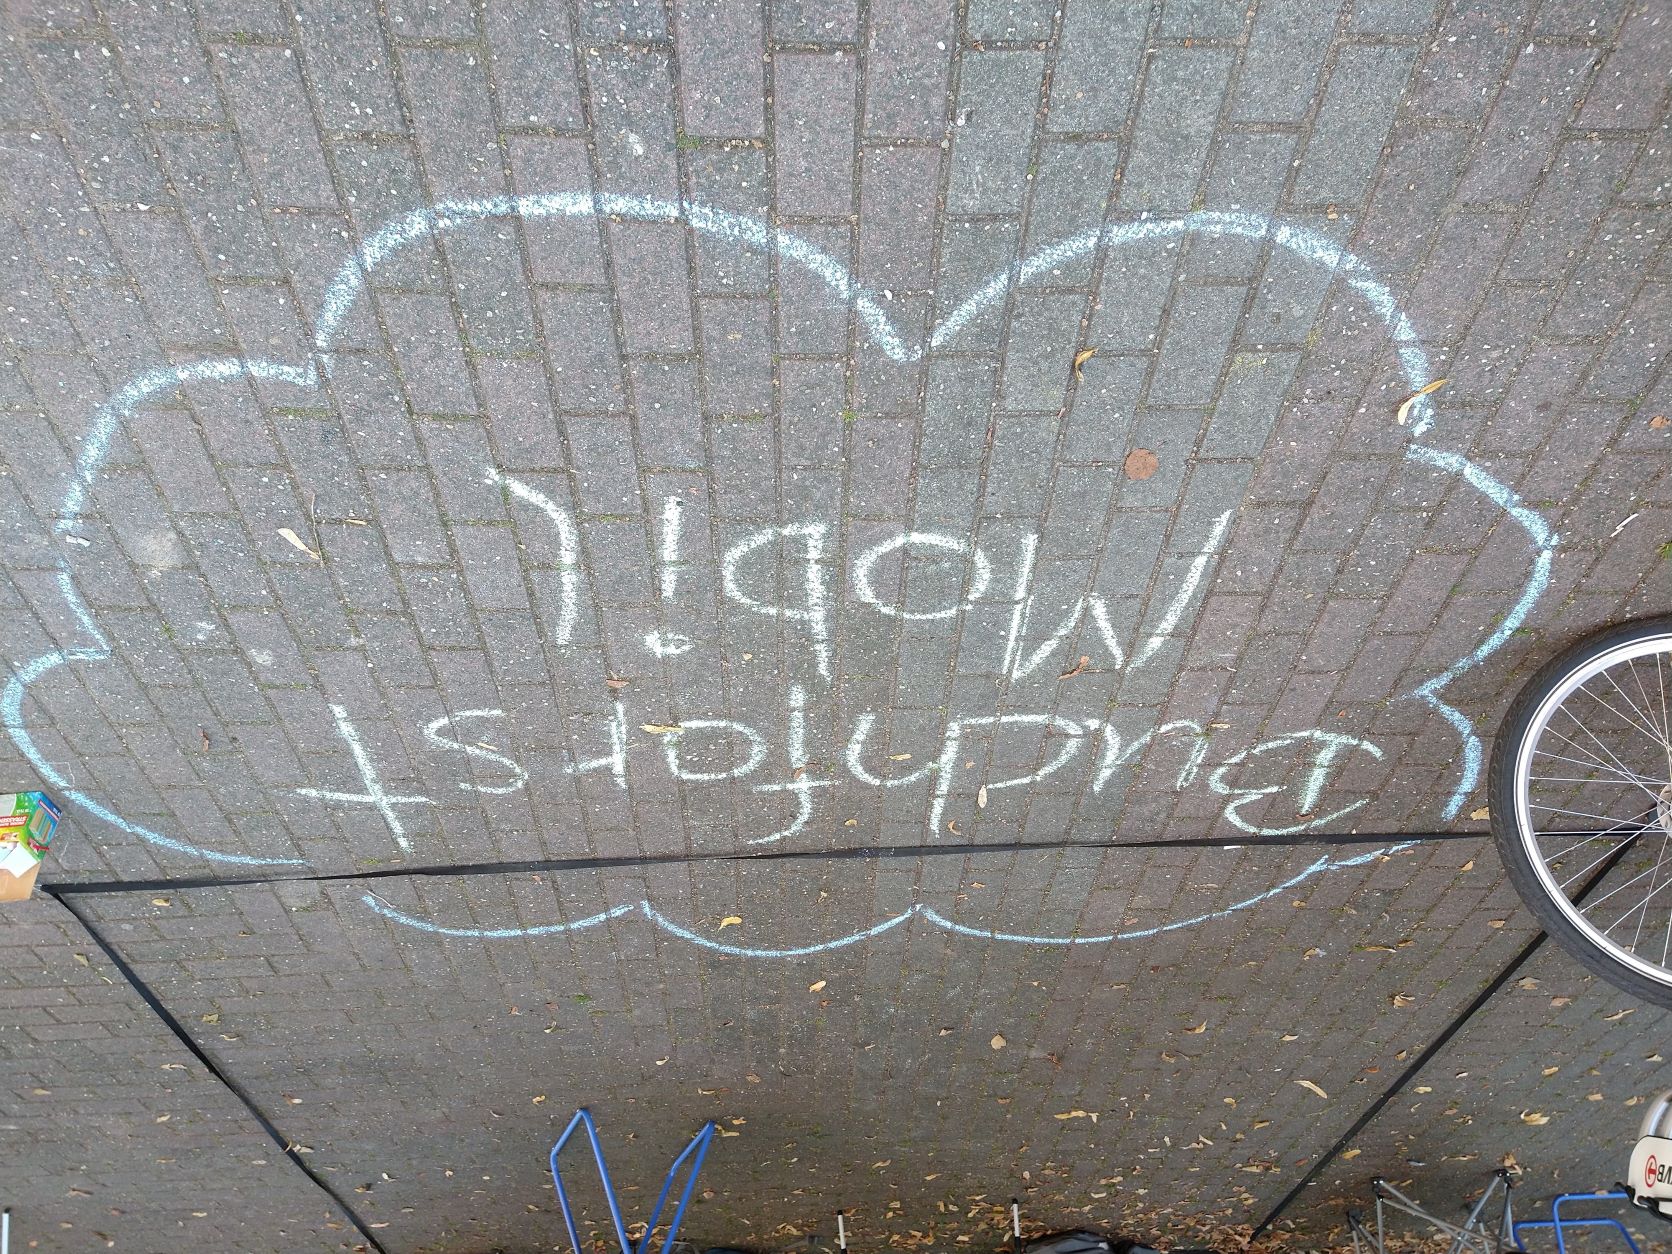 Buchforst
Mobil